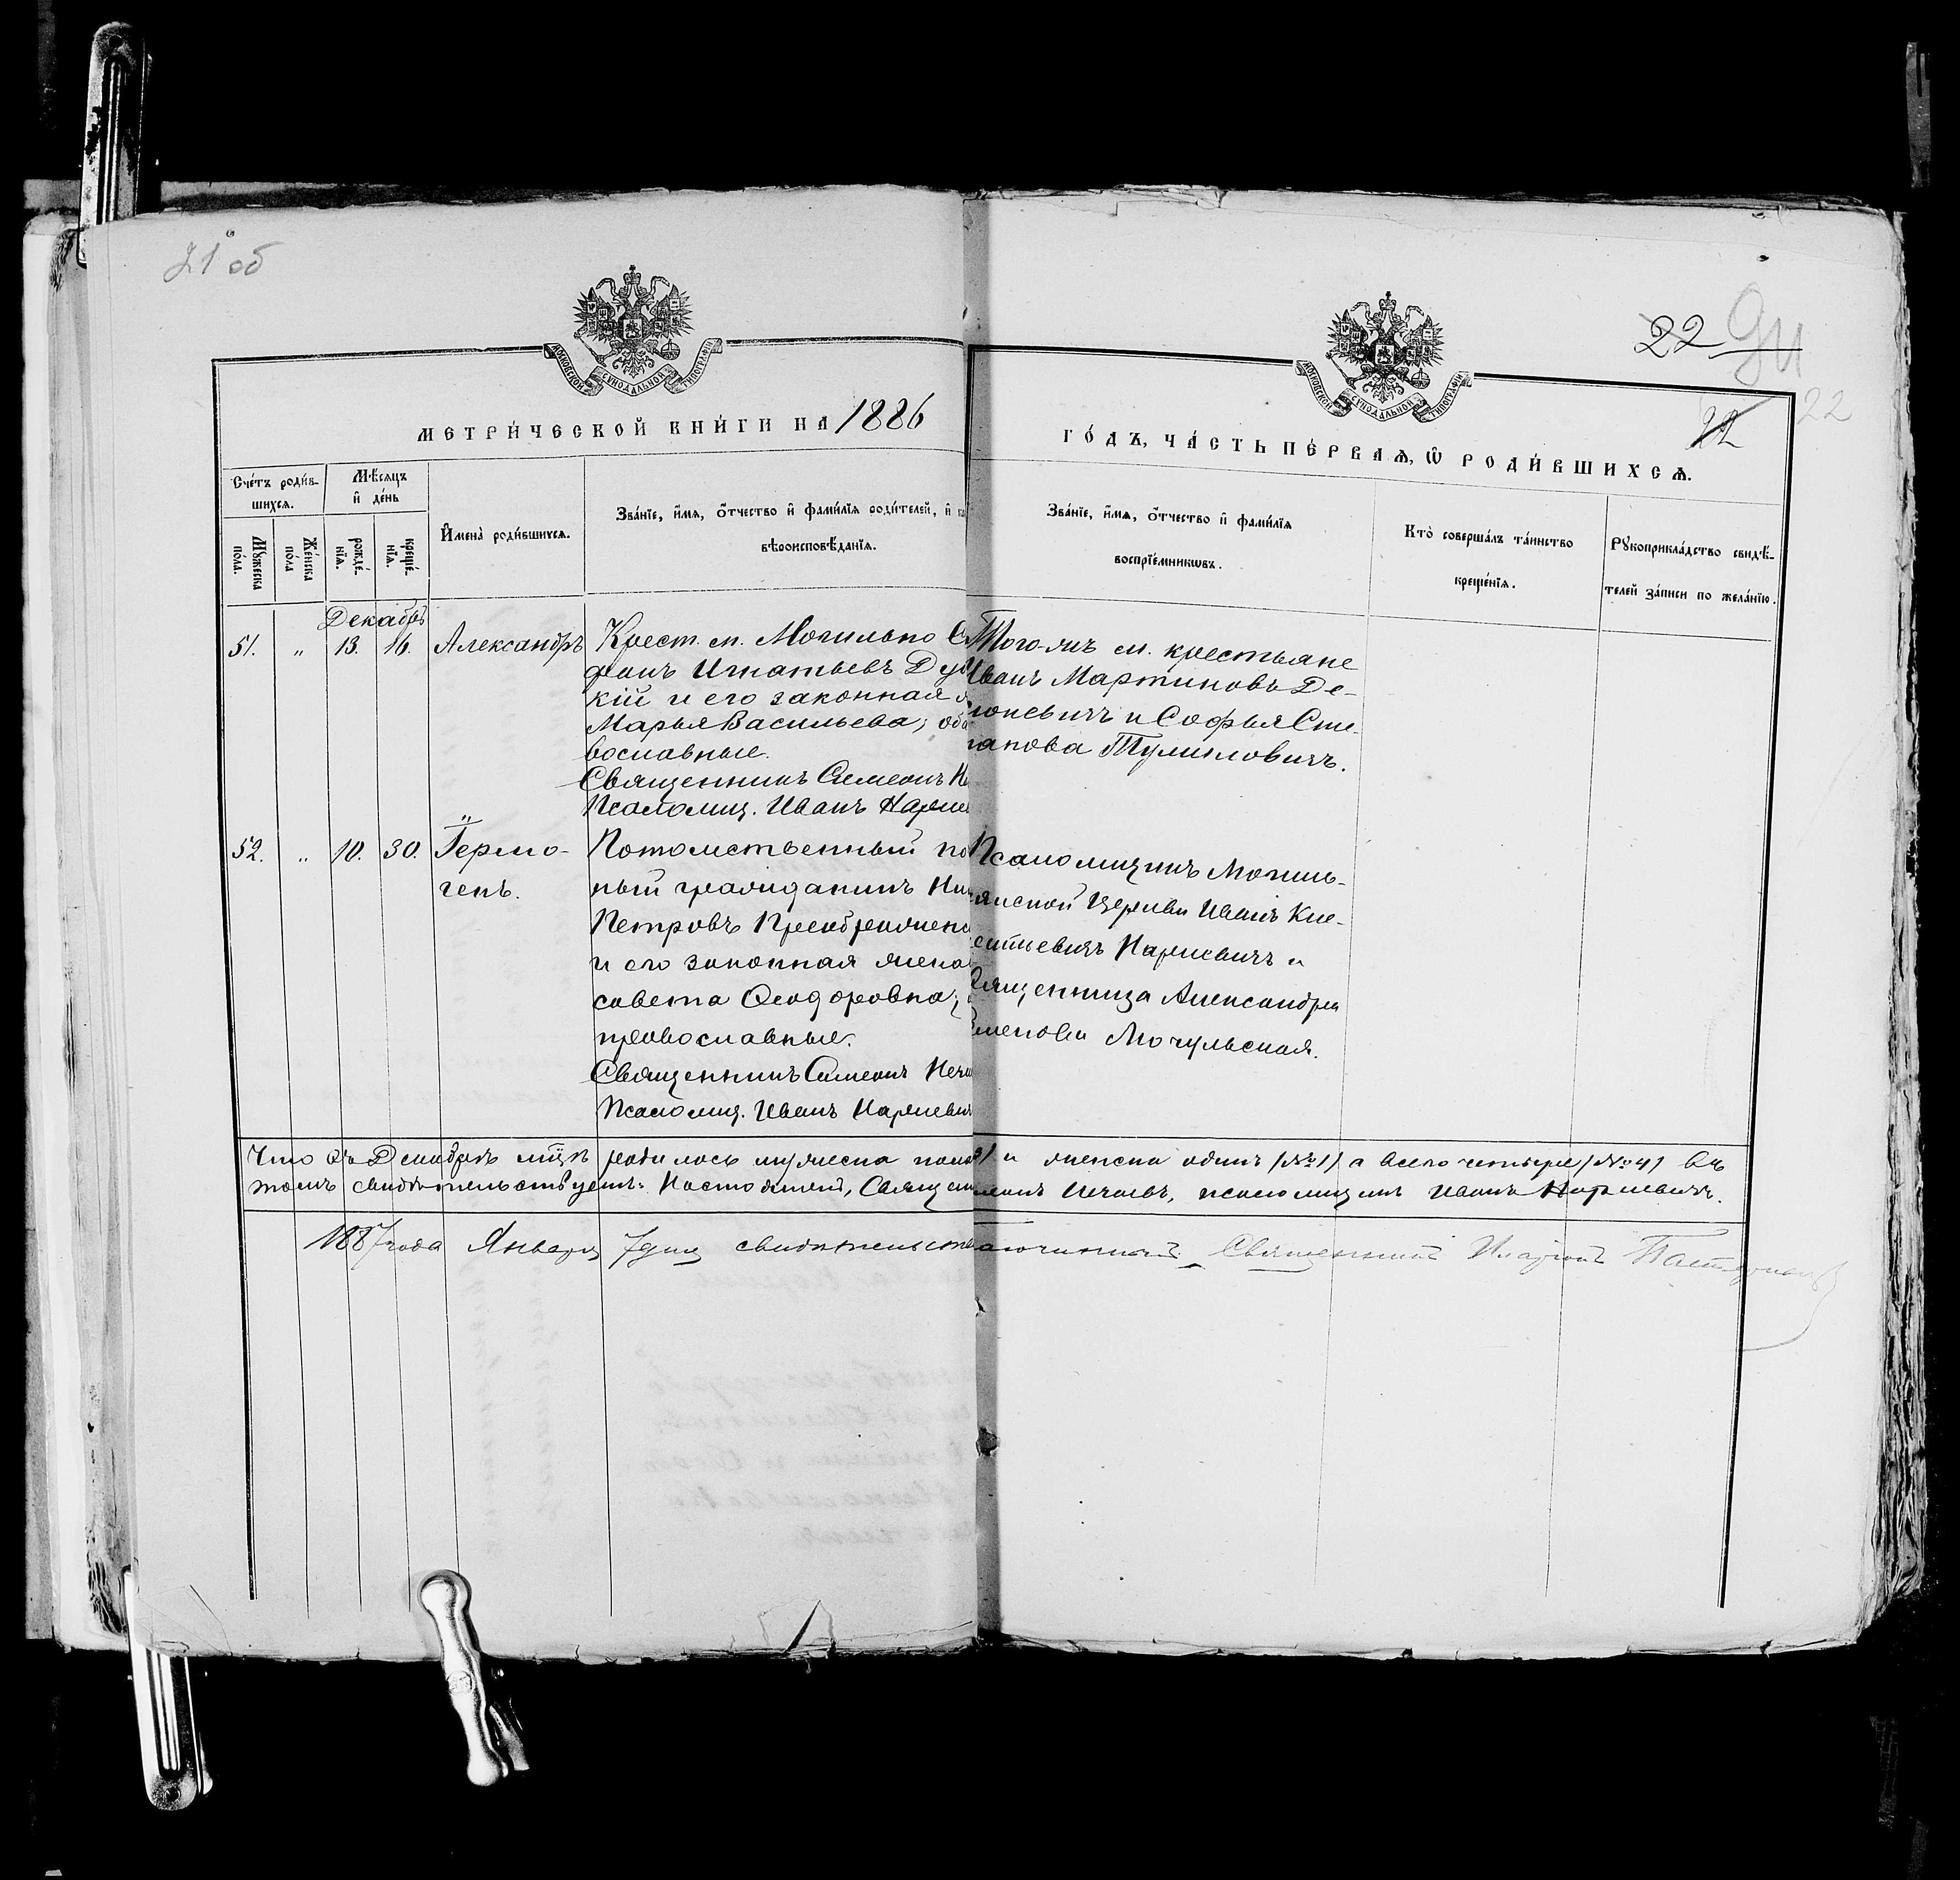 21 об
22
22
22
МОСКОВСКОЙ СУНОДАЛЬНОЙ ТИПОГРАФІИ
МОСКОВСКОЙ СУНОДАЛЬНОЙ ТИПОГРАФІИ
МЕТРИ́ЧЕСКОЙ КНИ́ГИ НА 1886
ГО́ДЪ, ЧА́СТЬ ПЕ́РВАѦ, Ѡ҆ РОДИ́ВШИХСѦ.
Сче́тъ роди́в-
шихсѧ.
Мꙋ́жеска по́ла.
Же́нска по́ла
Мѣ́сѧцъ
и҆ де́нь
рожде́-
нїѧ.
креще́-
нїѧ.
И҆мена̀ роди́вшихсѧ.
Зва́нїе, и҆́мѧ, ѻ҆́тчество и҆ фами́лїѧ роди́телей, и҆
вѣроисповѣ́данїѧ.
Зва́нїе, и҆́мѧ, ѻ҆́тчество и҆ фами́лїѧ
воспрїе́мникѡвъ.
Кто̀ соверша́лъ та́инство
креще́нїѧ.
Рꙋкоприкла́дство свидѣ́-
телей за́писи по жела́нїю.
Декабрь
51. „ 13. 16. Александръ
Крест. м. Могильно С
фанъ Игнатьевъ Дуб
кій и его законная ж
Марья Васильева; оба
вославные.
Священникъ Симеонъ Не
Псаломщ. Иванъ Нарке
Того-жъ м. крестьяне
Иванъ Мартиновъ Де-
онсевичъ и Софья Сте-
панова Тумиловичъ.
52. „ 10. 30. Гермо-
генъ.
Потомственный по
ный гражданинъ Ни
Петровъ Преображенс
и его законная жена
савета Ѳеодоровна;
православные.
Священникъ Симеонъ Неча
Псаломщ. Иванъ Наркевич
Псаломщикъ Могиль-
янской Церкви Иванъ Кле-
ментьевичъ Наркевичъ и
Священница Александра
Семенова Мочульская.
Что въ Декабрѣ мцѣ родилось мужеска пола и женска одинъ /№ 1/ а всего четыре /№ 4/ въ
томъ свидѣтельствуемъ: Настоятель, Священ Симеонъ Нечаевъ, псаломщикъ Иванъ Наркевичъ.
1887 года Января 7 дня свидѣтельств Благочинный Священникъ Иларіонъ